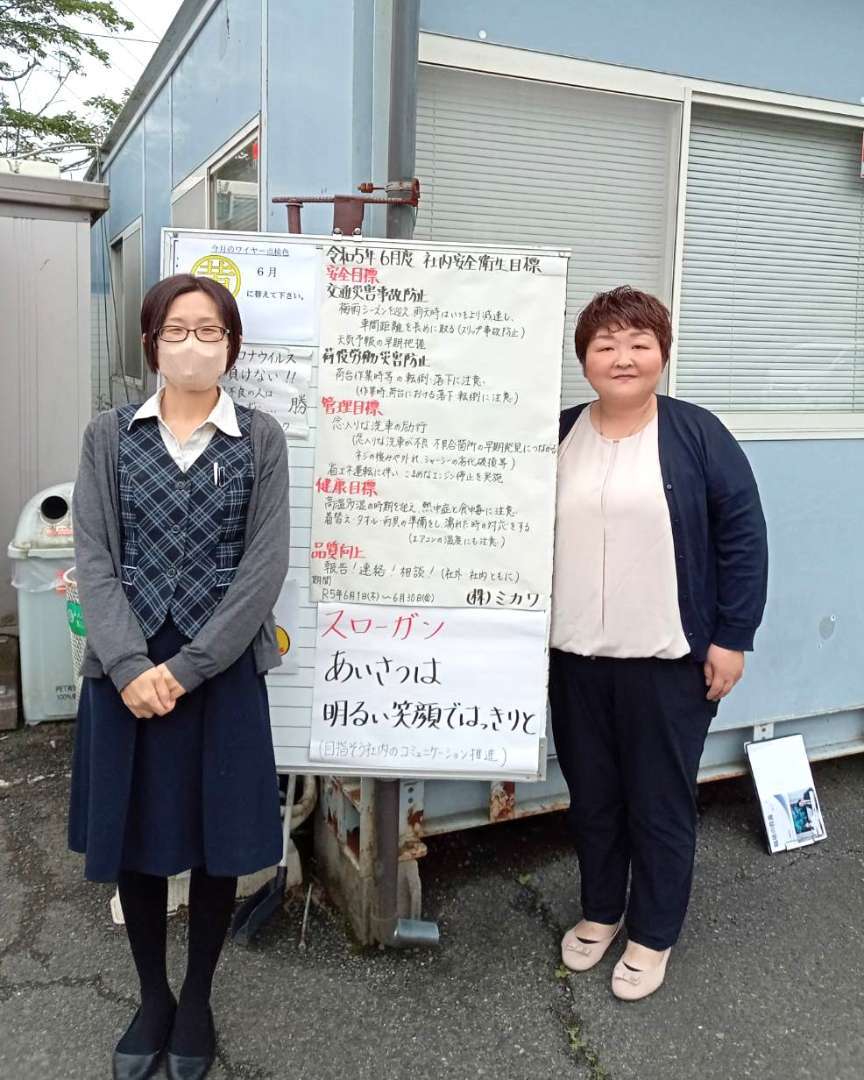 今月のワイヤー点検色
黄
6月
に替えて下さい。
コロナウイルス
負けない!!
不良の人は
勝
令和5年6月度 社内安全衛生目標
安全目標
交通災害事故防止
梅雨シーズンを迎え 雨天時はいつもより減速し、
車間距離を長めに取る(スリップ事故防止)
天気予報の早期把握
荷役労働災害防止
荷台作業時等の転倒、落下に注意
(作業時、荷台における落下 転倒に注意)
管理目標
念入りな洗車の励行
(念入りな洗車が不良 不具合箇所の早期発見につながる
ネジの緩みや外れ シャーシーの劣化破損等)
省エネ運転に伴い こまめなエンジン停止を実施
健康目標
高温多湿の時期を迎え 熱中症と食中毒に注意。
着替え・タオル・雨具の準備をし、濡れた時の対応をする
(エアコンの温度にも注意)
品質向上
報告!連絡!相談!(社外 社内ともに)
期間
R5年6月1日(木)~6月30日(金) (株)ミカワ
スローガン
あいさつは
明るい笑顔ではっきりと
(目指そう社内のコミュニケーション推進)
PET
100%